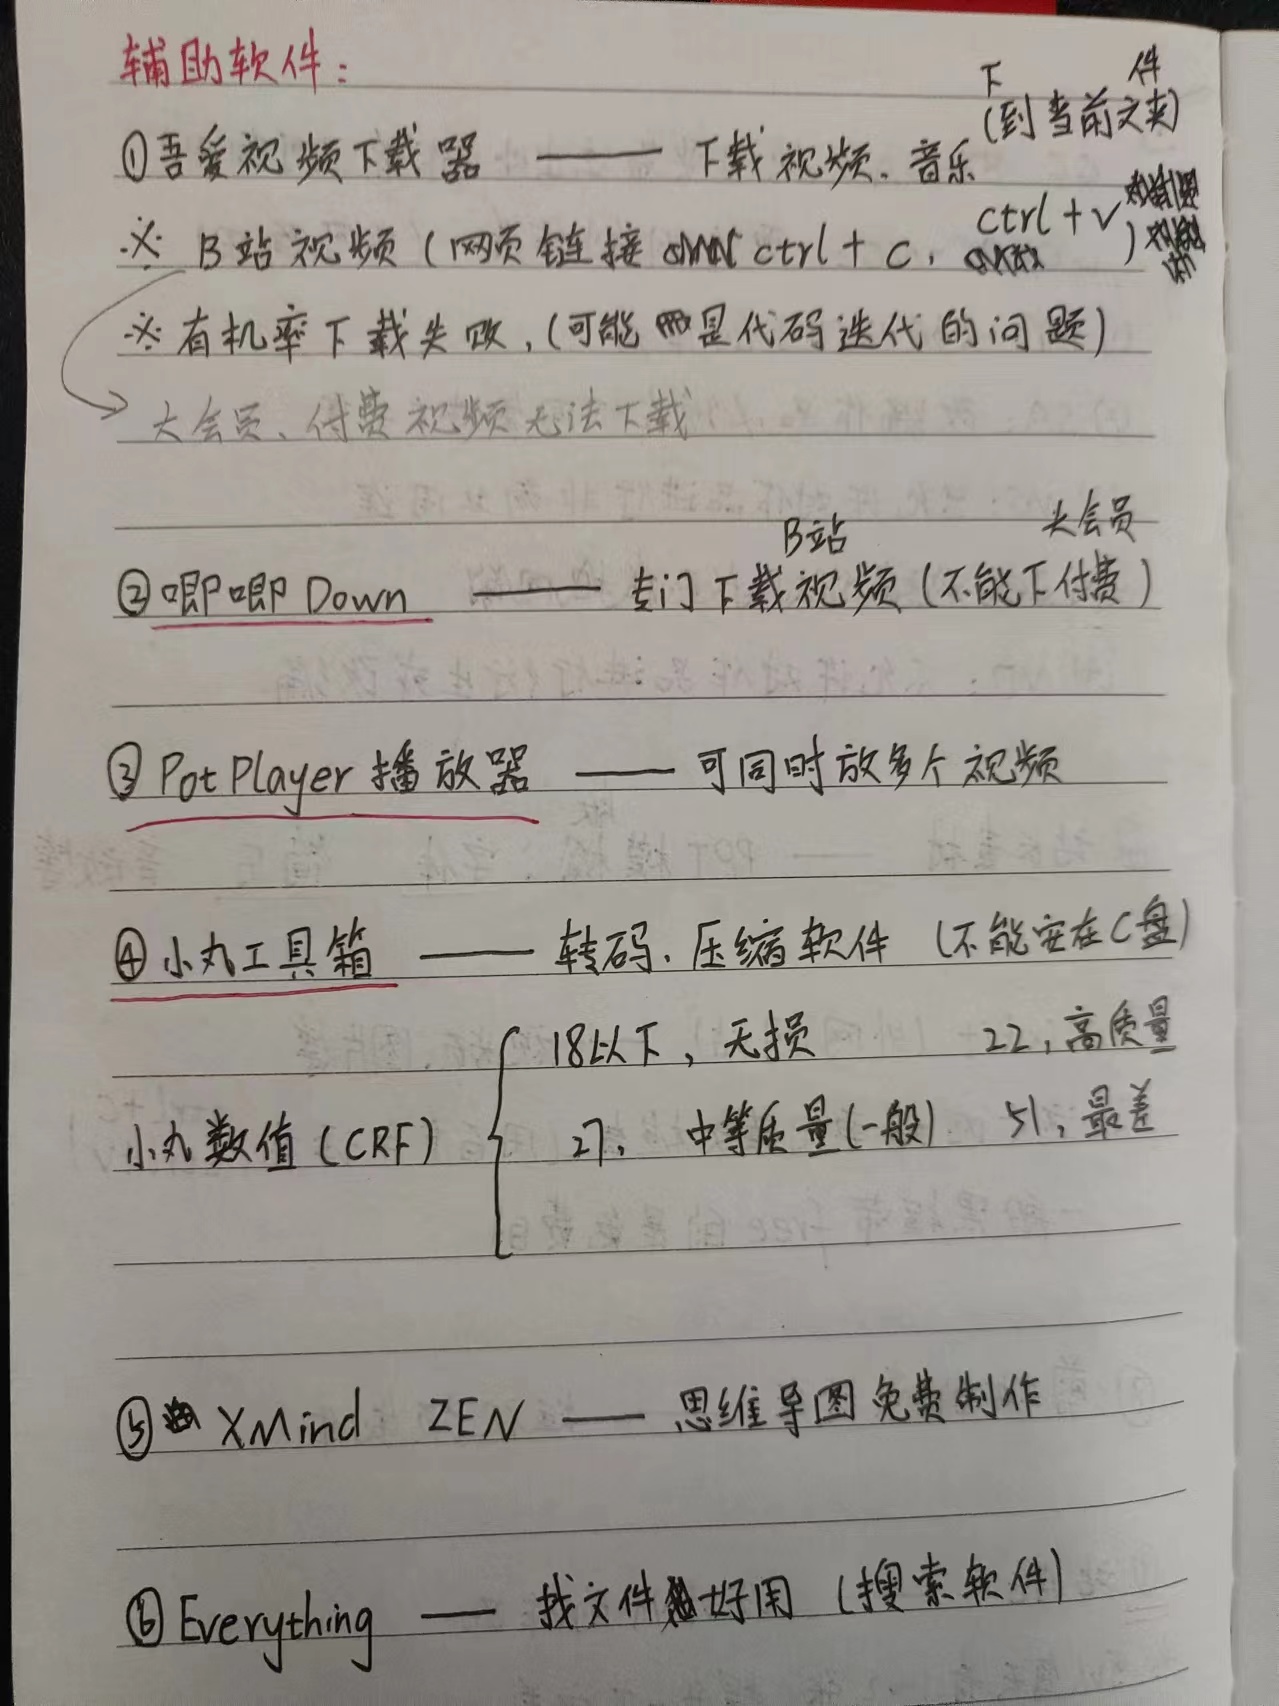 辅助软件：
①吾爱视频下载器 —— 下载视频、音乐（下到当前文件夹）
※ B站视频（网页链接 ctrl + c，ctrl + v）
※有机率下载失败，（可能是代码迭代的问题）
大会员、付费视频无法下载
②唧唧Down —— 专门下载B站视频（不能下付费大会员）
③PotPlayer播放器 —— 可同时放多个视频
④小丸工具箱 —— 转码、压缩软件（不能安在C盘）
18以下，无损 22，高质量
小丸数值（CRF） 27， 中等质量（一般） 51，最差
⑤XMind ZEN —— 思维导图免费制作
⑥Everything —— 找文件好用（搜索软件）